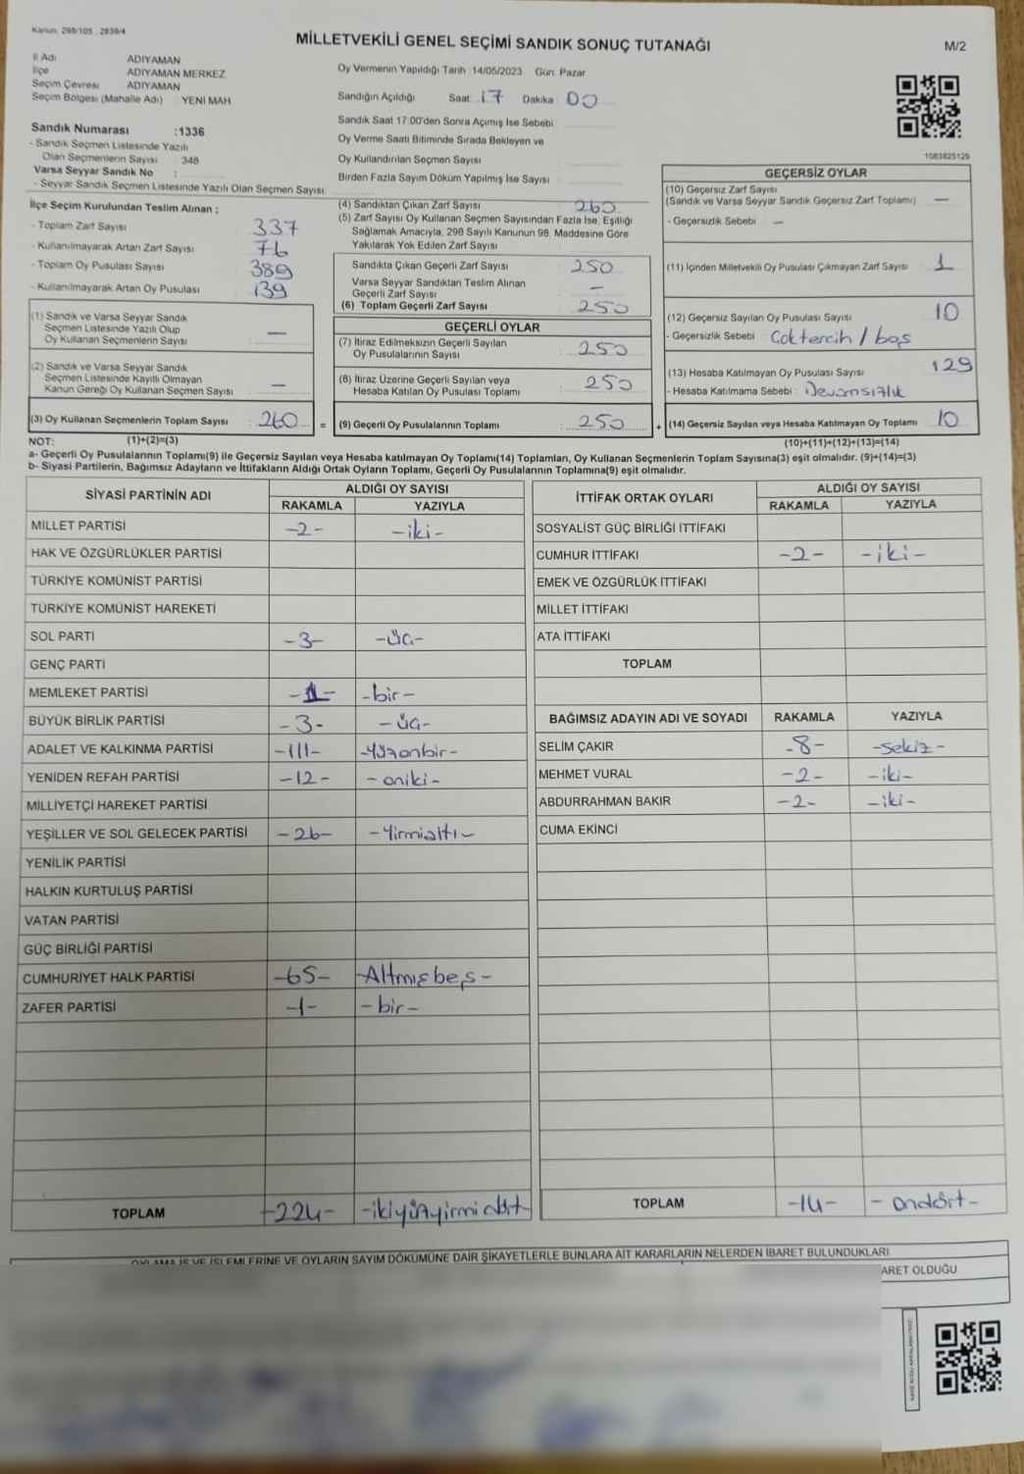 Kanun: 298/105 , 2839/4
MİLLETVEKİLİ GENEL SEÇİMİ SANDIK SONUÇ TUTANAĞI
M/2
İl Adı ADIYAMAN
İlçe ADIYAMAN MERKEZ
Seçim Çevresi ADIYAMAN
Seçim Bölgesi (Mahalle Adı) YENİ MAH
Sandık Numarası :1336
- Sandık Seçmen Listesinde Yazılı
Olan Seçmenlerin Sayısı 348
Varsa Seyyar Sandık No :
- Seyyar Sandık Seçmen Listesinde Yazılı Olan Seçmen Sayısı
Oy Vermenin Yapıldığı Tarih 14/05/2023 Gün: Pazar
Sandığın Açıldığı Saat 17 Dakika 00
Sandık Saat 17:00'den Sonra Açımış İse Sebebi
Oy Verme Saati Bitiminde Sırada Bekleyen ve
Oy Kullandırılan Seçmen Sayısı
Birden Fazla Sayım Döküm Yapılmış İse Sayısı
1083825129
İlçe Seçim Kurulundan Teslim Alınan ;
- Toplam Zarf Sayısı 337
- Kullanılmayarak Artan Zarf Sayısı 76
- Toplam Oy Pusulası Sayısı 389
- Kullanılmayarak Artan Oy Pusulası 139
(1) Sandık ve Varsa Seyyar Sandık
Seçmen Listesinde Yazılı Olup
Oy Kullanan Seçmenlerin Sayısı —
(2) Sandık ve Varsa Seyyar Sandık
Seçmen Listesinde Kayıtlı Olmayan
Kanun Gereği Oy Kullanan Seçmen Sayısı —
(3) Oy Kullanan Seçmenlerin Toplam Sayısı 260 =
(4) Sandıktan Çıkan Zarf Sayısı 260
(5) Zarf Sayısı Oy Kullanan Seçmen Sayısından Fazla İse, Eşitliği
Sağlamak Amacıyla, 298 Sayılı Kanunun 98. Maddesine Göre
Yakılarak Yok Edilen Zarf Sayısı
Sandıkta Çıkan Geçerli Zarf Sayısı 250
Varsa Seyyar Sandıktan Teslim Alınan
Geçerli Zarf Sayısı —
(6) Toplam Geçerli Zarf Sayısı 250
GEÇERLİ OYLAR
(7) İtiraz Edilmeksizin Geçerli Sayılan
Oy Pusulalarının Sayısı 250
(8) İtiraz Üzerine Geçerli Sayılan veya
Hesaba Katılan Oy Pusulası Toplamı 250
(9) Geçerli Oy Pusulalarının Toplamı : 250 +
GEÇERSİZ OYLAR
(10) Geçersiz Zarf Sayısı
(Sandık ve Varsa Seyyar Sandık Geçersiz Zarf Toplamı) —
- Geçersizlik Sebebi : —
(11) İçinden Milletvekili Oy Pusulası Çıkmayan Zarf Sayısı 1
(12) Geçersiz Sayılan Oy Pusulası Sayısı 10
- Geçersizlik Sebebi : Çoktercih / boş
(13) Hesaba Katılmayan Oy Pusulası Sayısı 129
- Hesaba Katılmama Sebebi : Devamsızlık
(14) Geçersiz Sayılan veya Hesaba Katılmayan Oy Toplamı 10
NOT: (1)+(2)=(3) (10)+(11)+(12)+(13)=(14)
a- Geçerli Oy Pusulalarının Toplamı(9) ile Geçersiz Sayılan veya Hesaba katılmayan Oy Toplamı(14) Toplamları, Oy Kullanan Seçmenlerin Toplam Sayısına(3) eşit olmalıdır. (9)+(14)=(3)
b- Siyasi Partilerin, Bağımsız Adayların ve İttifakların Aldığı Ortak Oyların Toplamı, Geçerli Oy Pusulalarının Toplamına(9) eşit olmalıdır.
SİYASİ PARTİNİN ADI ALDIĞI OY SAYISI
RAKAMLA YAZIYLA
MİLLET PARTİSİ -2- -iki-
HAK VE ÖZGÜRLÜKLER PARTİSİ
TÜRKİYE KOMÜNİST PARTİSİ
TÜRKİYE KOMÜNİST HAREKETİ
SOL PARTİ -3- -üç-
GENÇ PARTİ
MEMLEKET PARTİSİ -1- -bir-
BÜYÜK BİRLİK PARTİSİ -3- -üç-
ADALET VE KALKINMA PARTİSİ -111- -yüzonbir-
YENİDEN REFAH PARTİSİ -12- -oniki-
MİLLİYETÇİ HAREKET PARTİSİ
YEŞİLLER VE SOL GELECEK PARTİSİ -26- -Yirmialtı-
YENİLİK PARTİSİ
HALKIN KURTULUŞ PARTİSİ
VATAN PARTİSİ
GÜÇ BİRLİĞİ PARTİSİ
CUMHURİYET HALK PARTİSİ -65- Altmışbeş-
ZAFER PARTİSİ -1- -bir-
TOPLAM -224- -ikiyüzyirmidört-
İTTİFAK ORTAK OYLARI ALDIĞI OY SAYISI
RAKAMLA YAZIYLA
SOSYALİST GÜÇ BİRLİĞİ İTTİFAKI
CUMHUR İTTİFAKI -2- -iki-
EMEK VE ÖZGÜRLÜK İTTİFAKI
MİLLET İTTİFAKI
ATA İTTİFAKI
TOPLAM
BAĞIMSIZ ADAYIN ADI VE SOYADI RAKAMLA YAZIYLA
SELİM ÇAKIR -8- -sekiz-
MEHMET VURAL -2- -iki-
ABDURRAHMAN BAKIR -2- -iki-
CUMA EKİNCİ
TOPLAM -14- -ondört-
İŞLEMLERİNE VE OYLARIN SAYIM DÖKÜMÜNE DAİR ŞİKAYETLERLE BUNLARA AİT KARARLARIN NELERDEN İBARET BULUNDUKLARI
ARET OLDUĞU